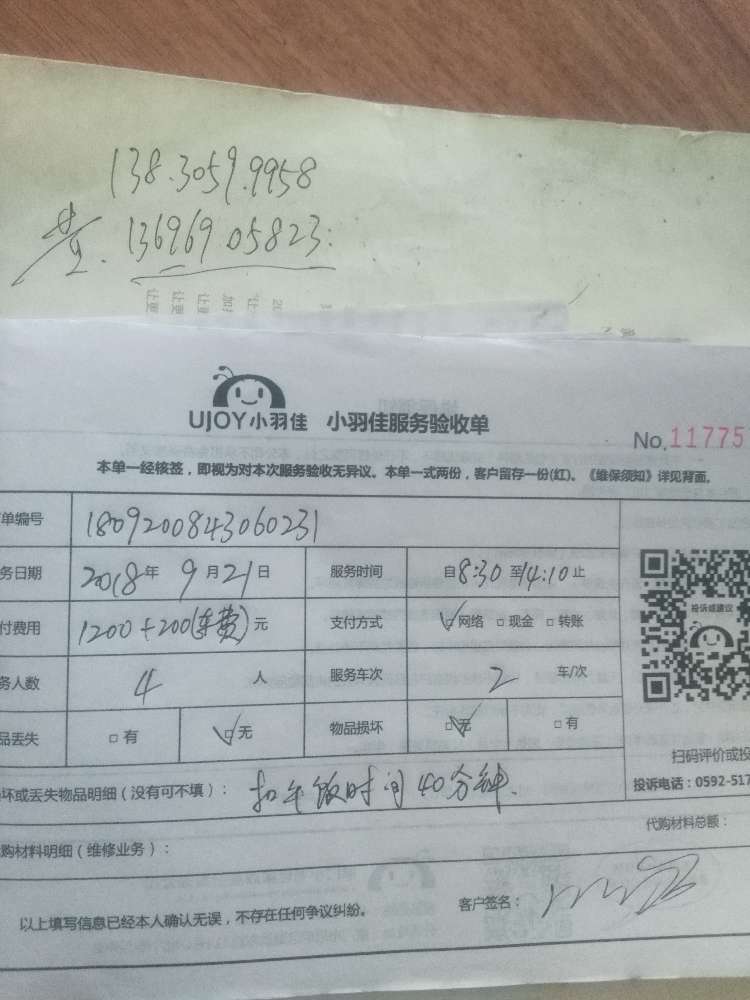 138.3059.9958
黄.13696905823.
UJOY小羽佳 小羽佳服务验收单
No.11775
本单一经核签，即视为对本次服务验收无异议。本单一式两份，客户留存一份(红)。《维保须知》详见背面。
单编号 1809200843060231
务日期 2018年 9月21日 服务时间 自8:30至14:10止
付费用 1200+200(车费)元 支付方式 网络 现金 转账
投诉或建议
务人数 4 人 服务车次 2 车/次
品丢失 有 无 物品损坏 无 有
扫码评价或投
坏或丢失物品明细（没有可不填）： 扣午饭时间40分钟.
投诉电话：0592-517
代购材料总额：
购材料明细（维修业务）：
以上填写信息已经本人确认无误，不存在任何争议纠纷。 客户签名：